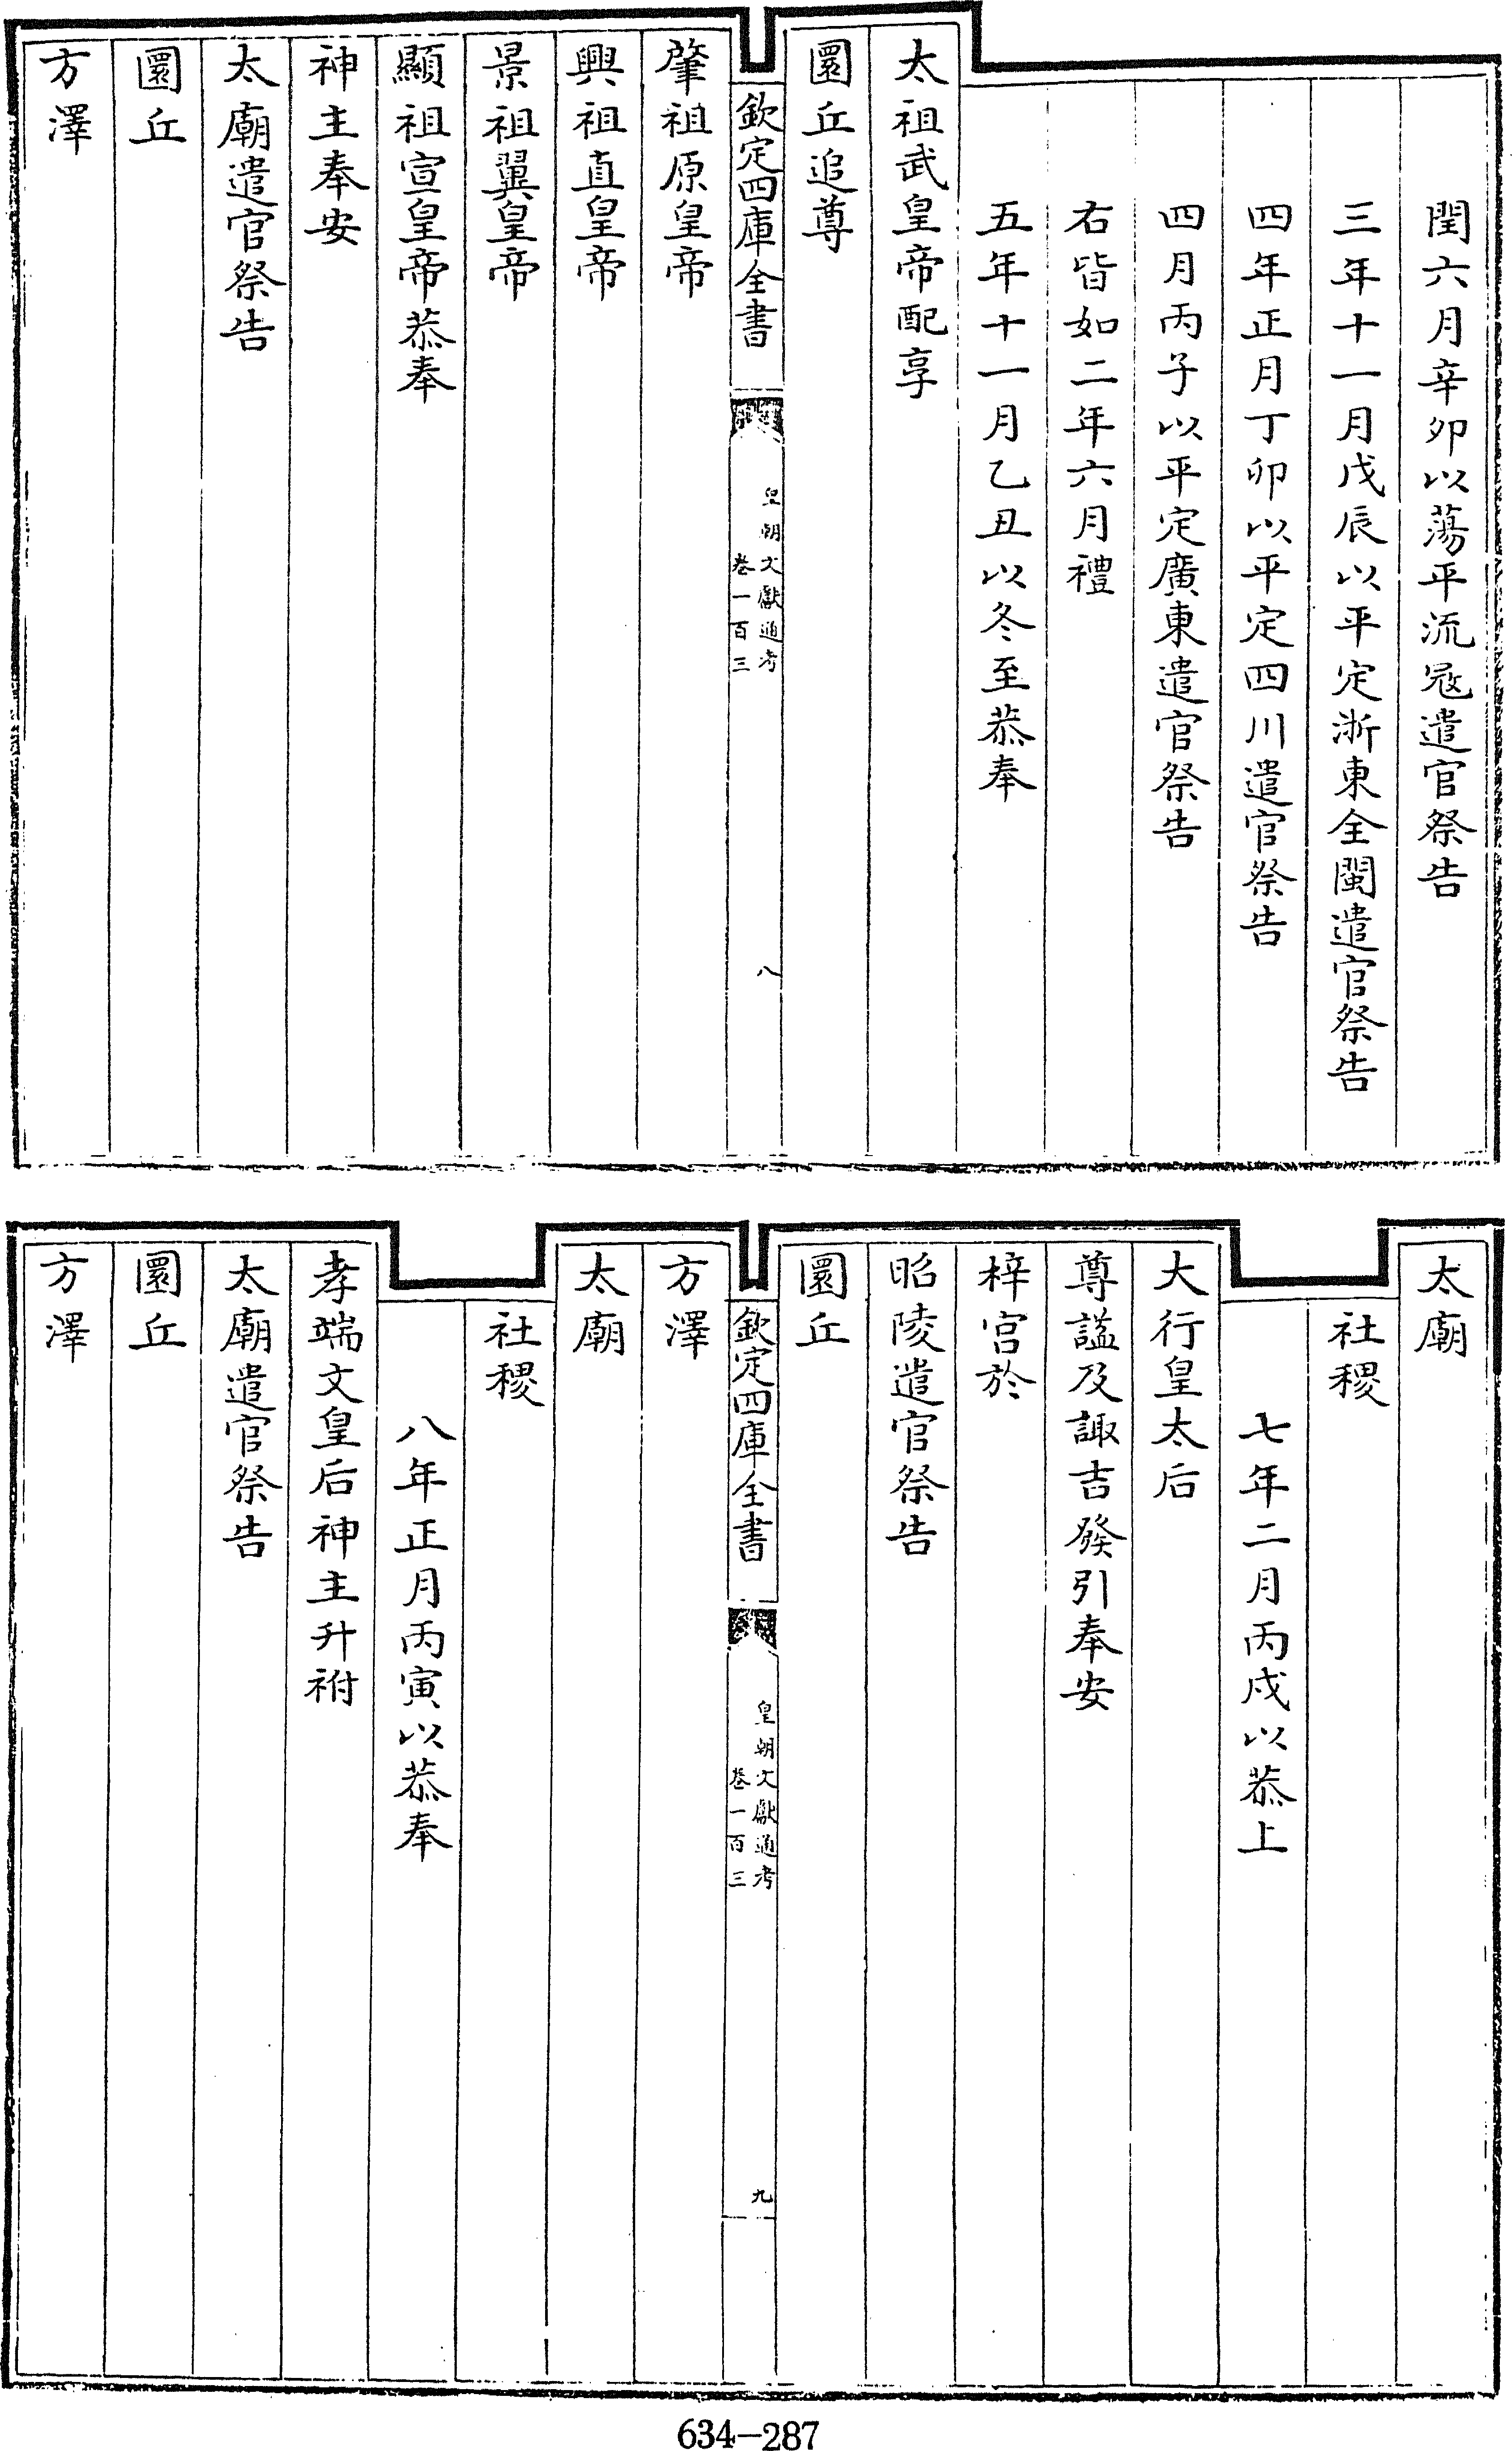 閏六月辛卯以蕩平流寇遣官祭告
三年十一月戊辰以平定浙東全閩遣官祭告
四年正月丁卯以平定四川遣官祭告
四月丙子以平定廣東遣官祭告
右皆如二年六月禮
五年十一月乙丑以冬至恭奉
太祖武皇帝配享
圜丘追尊
欽定四庫全書
皇朝文獻通考
卷一百三
八
肇祖原皇帝
興祖直皇帝
景祖翼皇帝
顯祖宣皇帝恭奉
神主奉安
太廟遣官祭告
圜丘
方澤
太廟
社稷
七年二月丙戌以恭上
大行皇太后
尊諡及諏吉發引奉安
梓宮於
昭陵遣官祭告
圜丘
欽定四庫全書
皇朝文獻通考
卷一百三
九
方澤
太廟
社稷
八年正月丙寅以恭奉
孝端文皇后神主升祔
太廟遣官祭告
圜丘
方澤
634-287